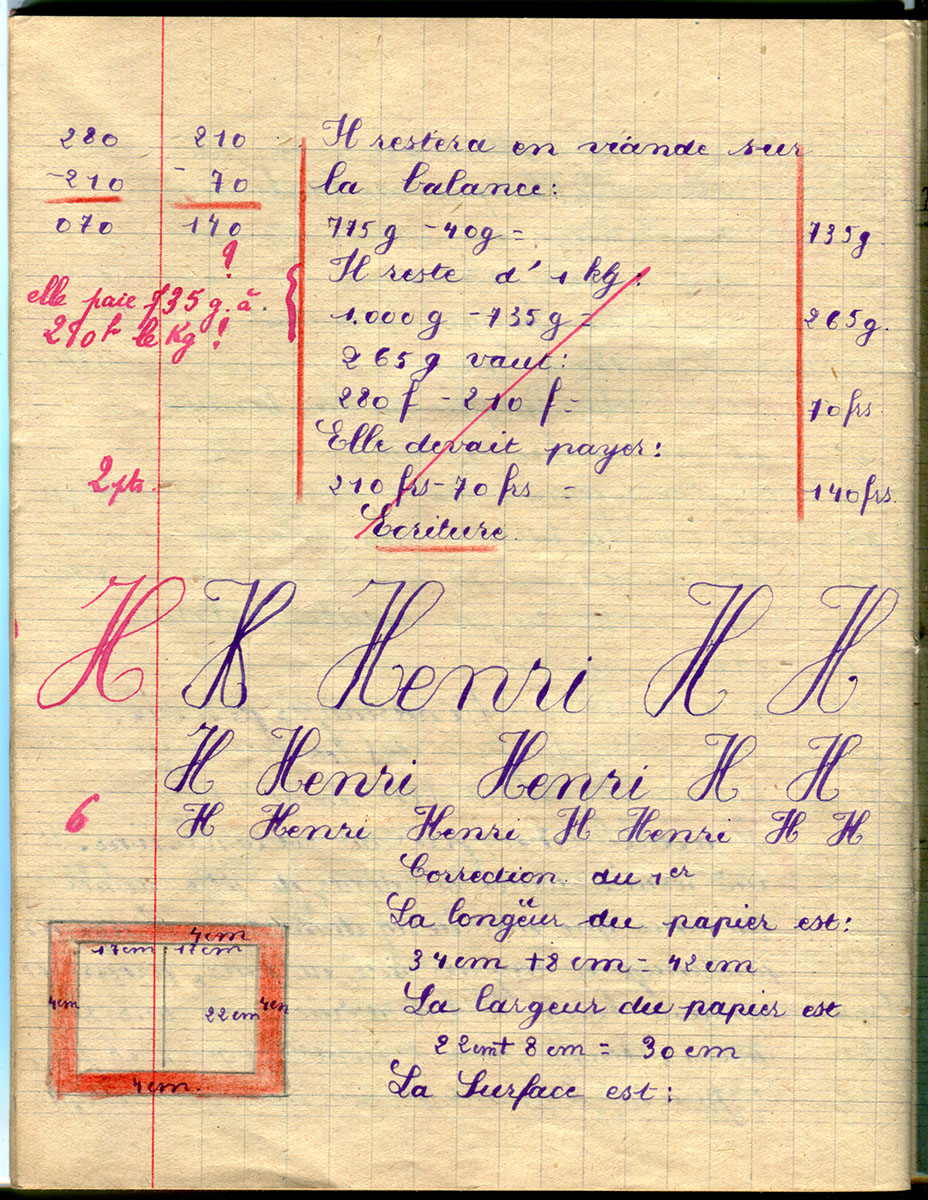 280 210 Il restera en viande sur
-210 - 70 la balance:
070 140 775g - 40g = 735g
! Il reste d'1 kg:
elle paie 735 g. à 1.000 g - 735 g = 265g.
210f le Kg! 265 g vaut:
280 f - 210 f = 70 frs
Elle devait payer:
2 pts. 210 frs - 70 frs = 140 frs.
Ecriture.
H H Henri H H
H Henri Henri H H
6 H Henri Henri H Henri H H
Correction du 1er
La longeur du papier est:
34 cm + 8 cm = 42 cm
La largeur du papier est
22 cm + 8 cm = 30 cm
La Surface est:
4cm
17cm 17cm
4cm 22cm 4cm
4cm.